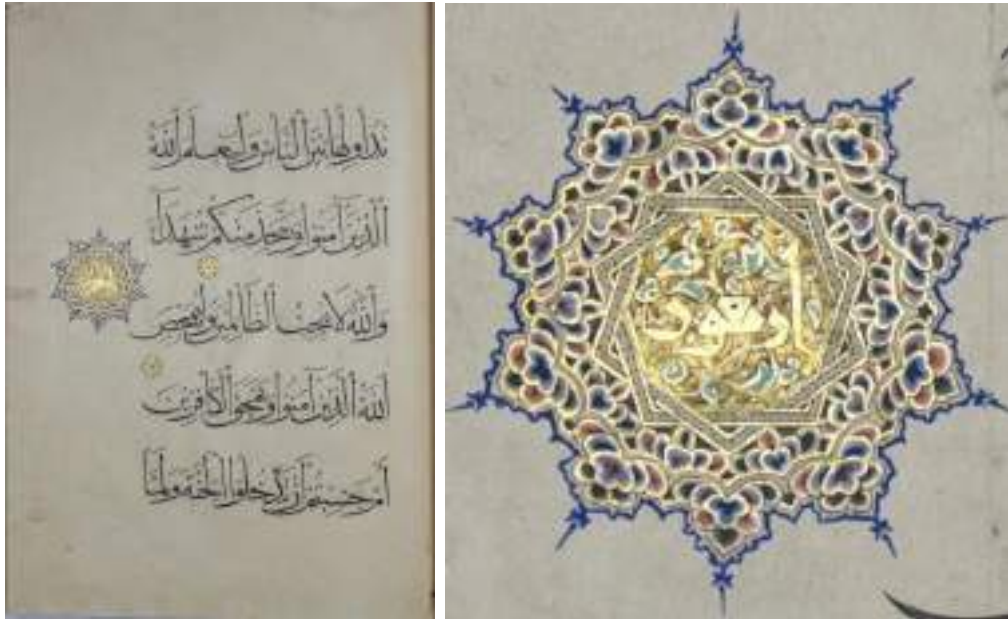 نداولها بين الناس وليعلم الله
الذين آمنوا ويتخذ منكم شهداء
والله لا يحب الظالمين وليمحص
الله الذين آمنوا ويمحق الكافرين
أم حسبتم أن تدخلوا الجنة ولما
اربعون